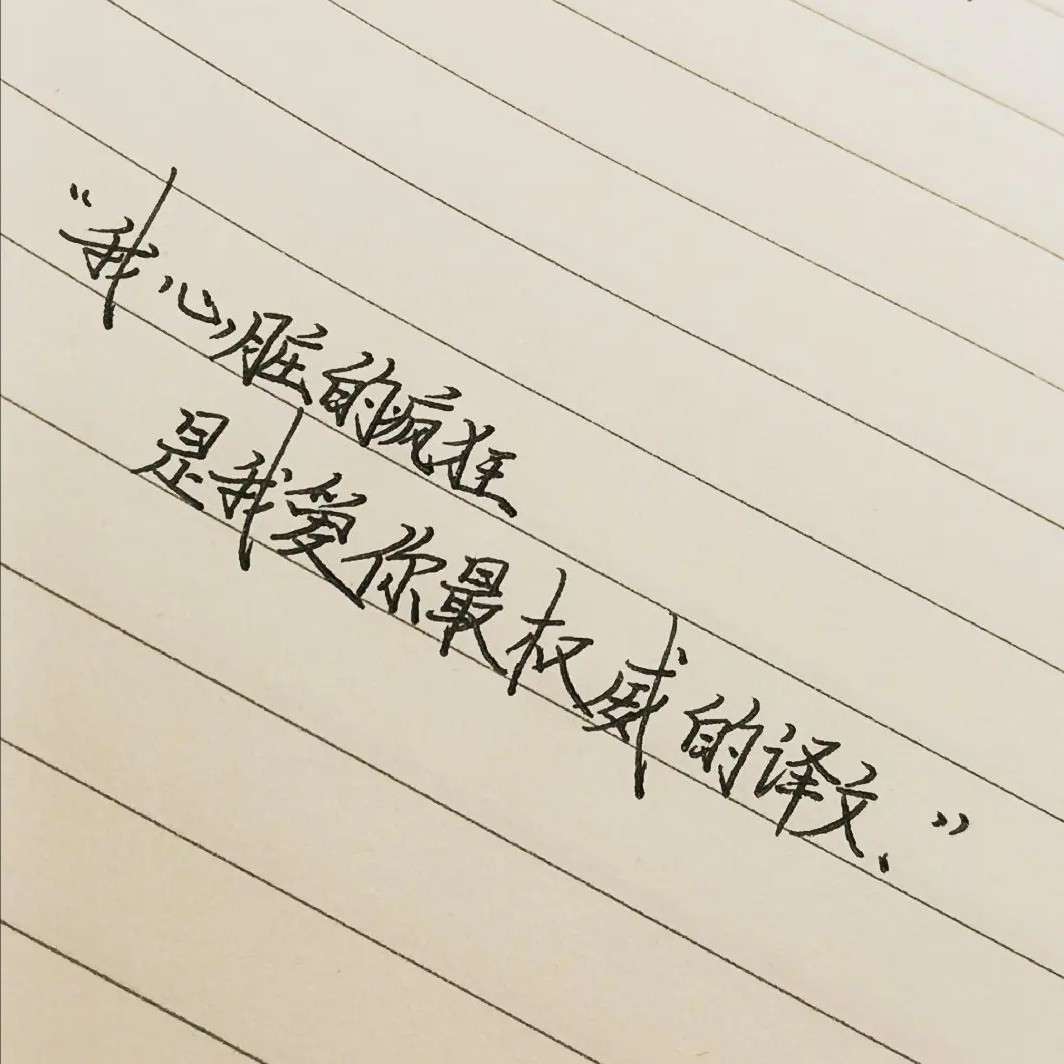 “我心脏的疯狂
是我爱你最权威的译文、”